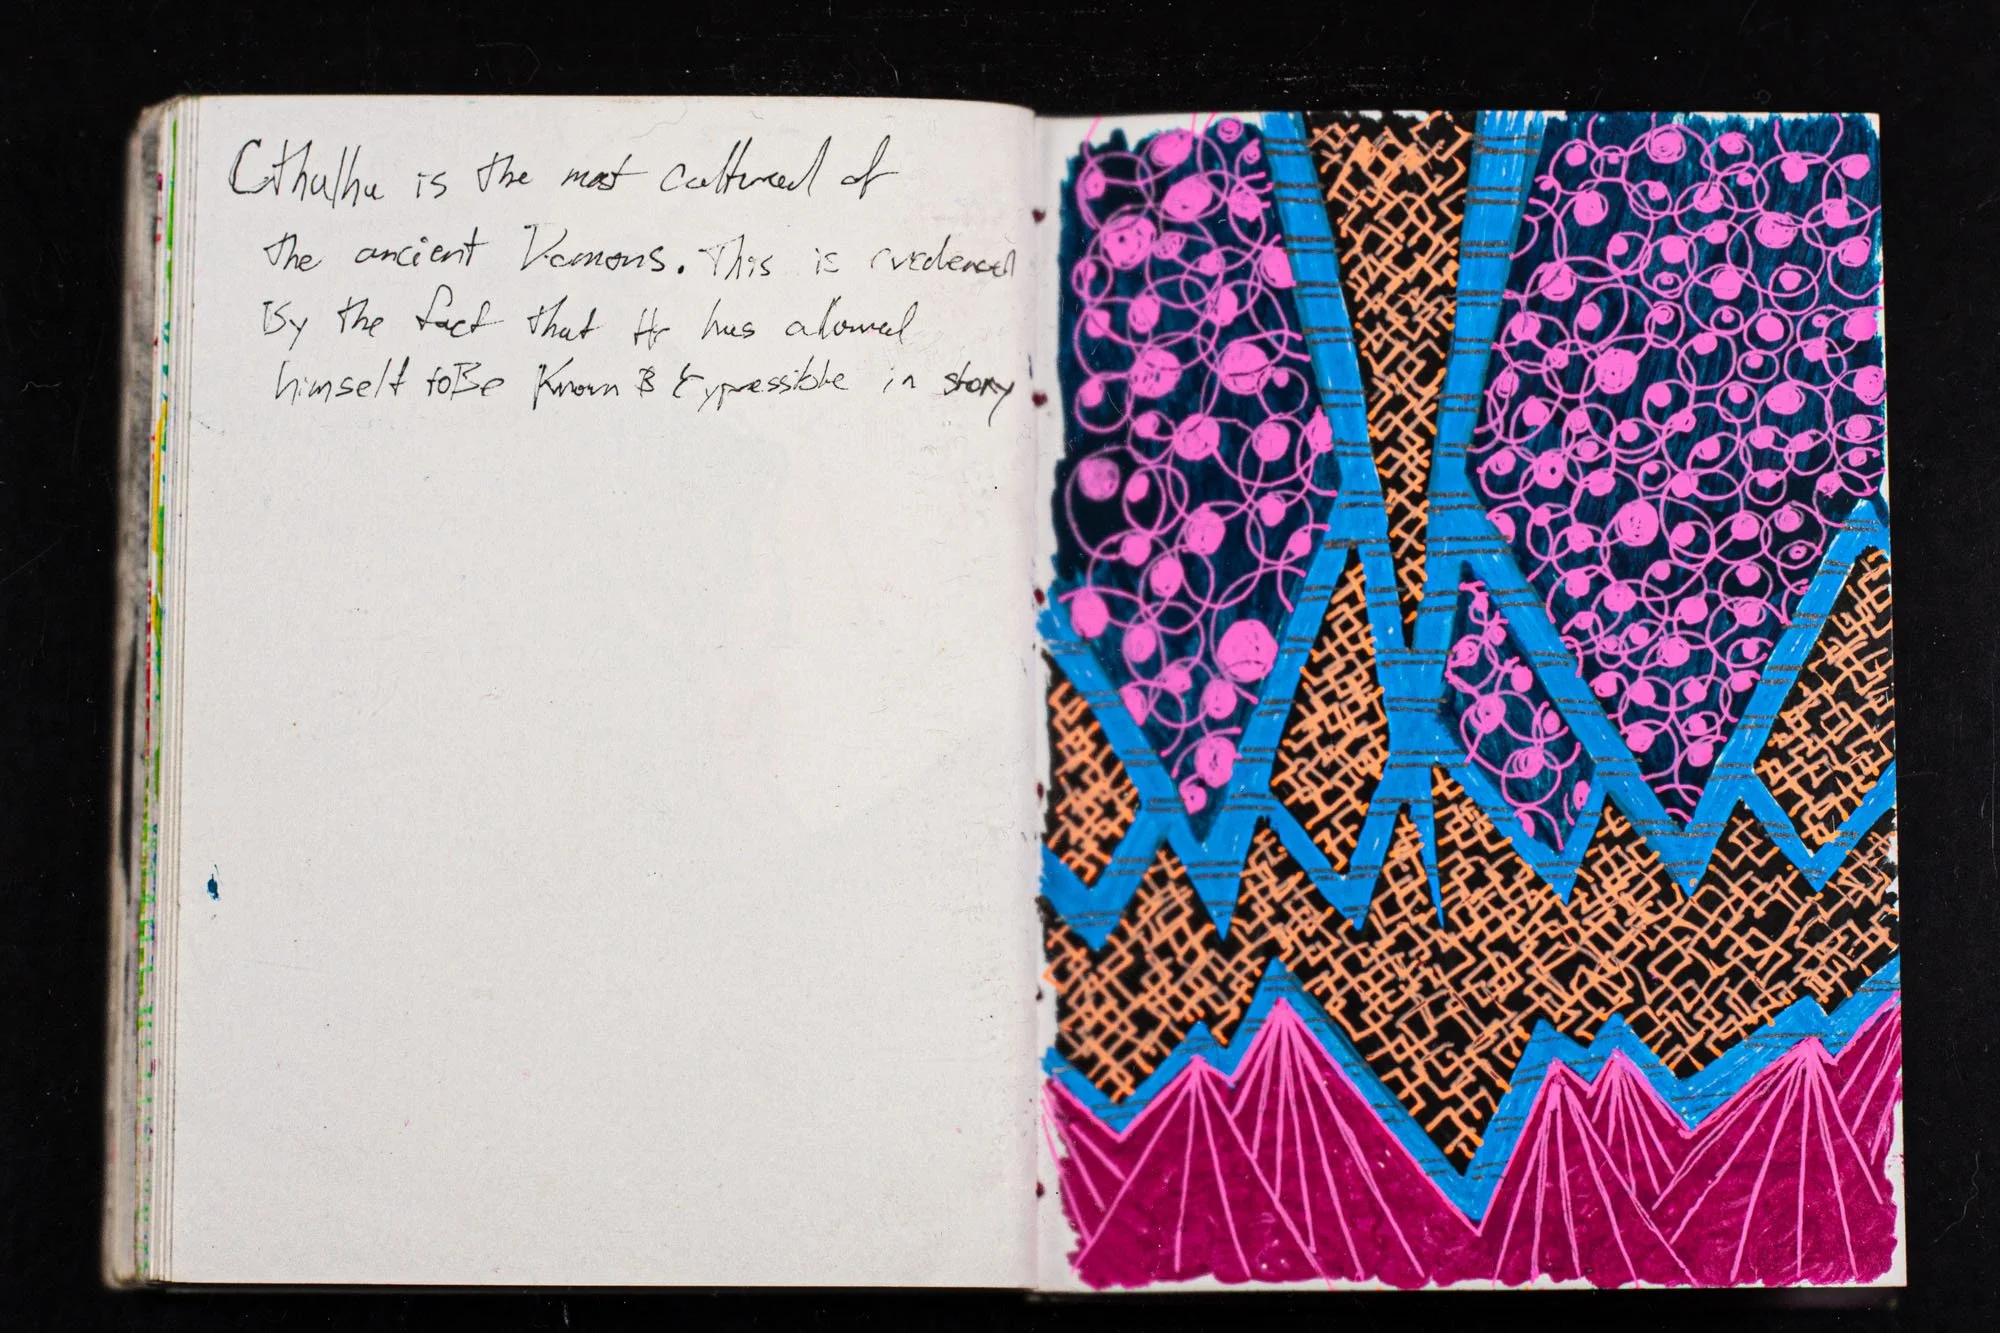 Cthulhu is the most cultured of
the ancient Demons. This is evidenced
By the fact that He has allowed
himself to Be Known & Expressible in story